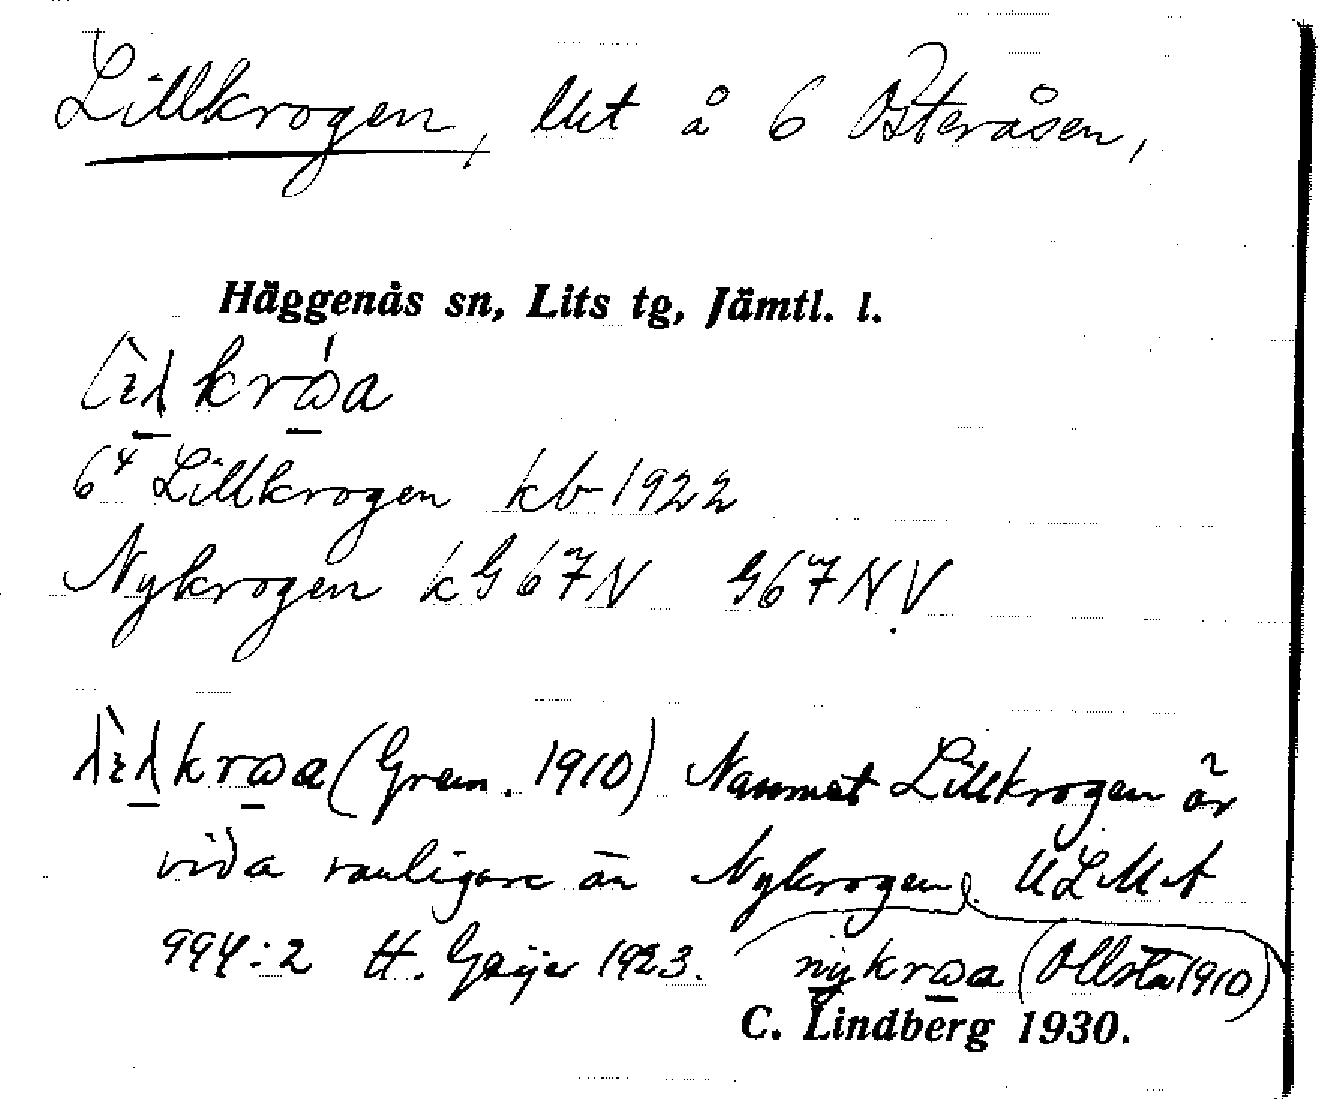 Lillkrogen, lht å 6 Österåsen,
Häggenås sn, Lits tg, Jämtl. l.
6⁴ Lillkrogen kb 1922
Nykrogen kG67N G67N.V
(Gren. 1910) Namnet Lillkrogen är
vida vanligare än Nykrogen ULMA
994:2 H. Geijer 1923. (Ollsta 1910)
C. Lindberg 1930.